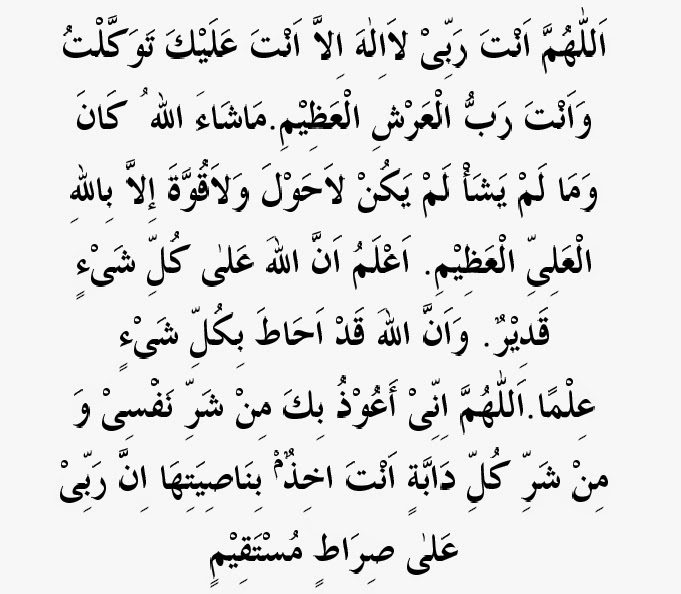 اَللّٰهُمَّ اَنْتَ رَبِّىْ لاَاِلٰهَ اِلاَّ اَنْتَ عَلَيْكَ تَوَكَّلْتُ
وَاَنْتَ رَبُّ الْعَرْشِ الْعَظِيْمِ.مَاشَاءَ اللهُ كَانَ
وَمَا لَمْ يَشَأْ لَمْ يَكُنْ لاَحَوْلَ وَلاَقُوَّةَ إِلاَّ بِاللهِ
الْعَلِىِّ الْعَظِيْمِ. اَعْلَمُ اَنَّ اللهَ عَلٰى كُلِّ شَىْءٍ
قَدِيْرٌ. وَاَنَّ اللهَ قَدْ اَحَاطَ بِكُلِّ شَىْءٍ
عِلْمًا.اَللّٰهُمَّ اِنِّىْ أَعُوْذُ بِكَ مِنْ شَرِّ نَفْسِىْ وَ
مِنْ شَرِّ كُلِّ دَابَّةٍ اَنْتَ اخِذٌمْ بِنَاصِيَتِهَا اِنَّ رَبِّىْ
عَلٰى صِرَاطٍ مُسْتَقِيْمٍ